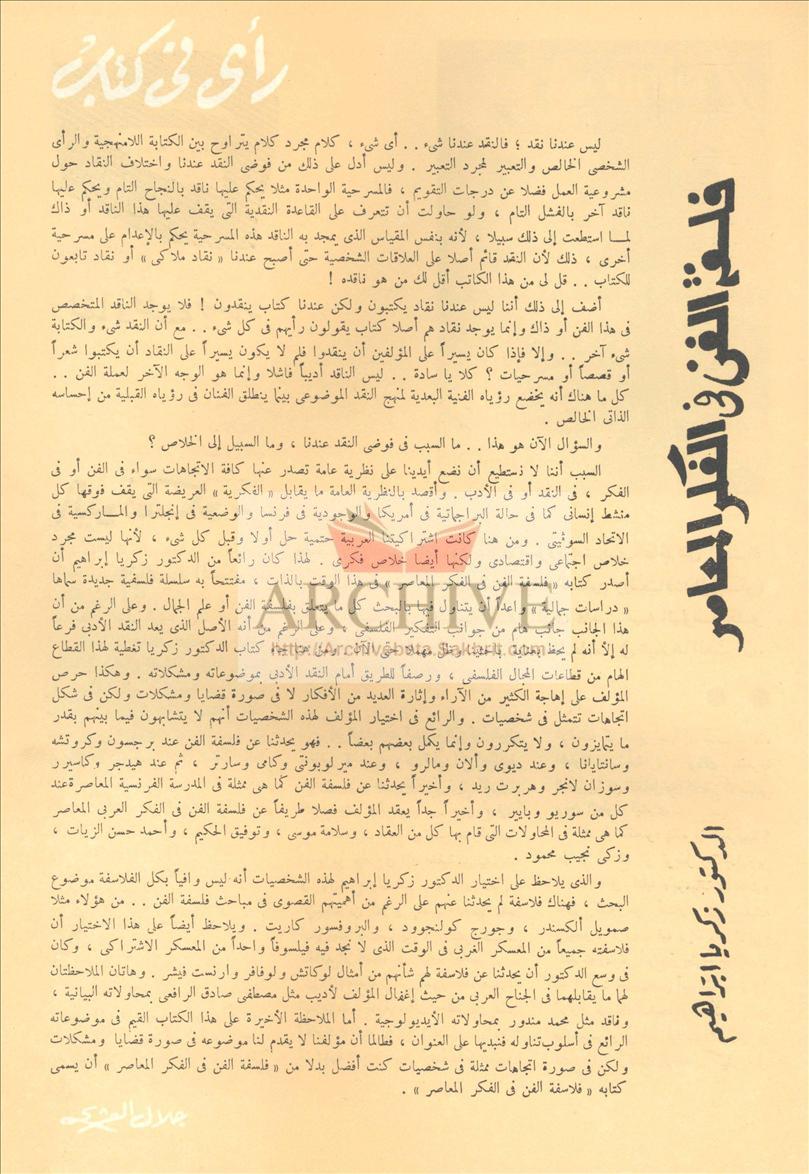 رأى فى كتاب
فلسفة الفن فى الفكر المعاصر
الدكتور زكريا ابراهيم
ليس عندنا نقد ؛ فالنقد عندنا شىء . . أى شىء ، كلام مجرد كلام يتراوح بين الكتابة اللامنهجية والرأى
الشخصى الخالص والتعبير لمجرد التعبير . وليس أدل على ذلك من فوضى النقد عندنا واختلاف النقاد حول
مشروعية العمل فضلا عن درجات التقويم ، فالمسرحية الواحدة مثلا يحكم عليها ناقد بالنجاح التام ويحكم عليها
ناقد آخر بالفشل التام ، ولو حاولت أن تتعرف على القاعدة النقدية التى يقف عليها هذا الناقد أو ذاك
لمـا استطعت إلى ذلك سبيلا ، لأنه بنفس المقياس الذى يمجد به الناقد هذه المسرحية يحكم بالإعدام على مسرحية
أخرى ، ذلك لأن النقد قائم أصلا على العلاقات الشخصية حتى أصبح عندنا « نقاد ملاكى » أو نقاد تابعون
للكتاب . . قل لى من هذا الكاتب أقل لك من هو ناقده !
أضف إلى ذلك أننا ليس عندنا نقاد يكتبون ولكن عندنا كتاب ينقدون ! فلا يوجد الناقد المتخصص
فى هذا الفن أو ذاك وإنما يوجد نقاد هم أصلا كتاب يقولون رأيهم فى كل شىء . . مع أن النقد شىء والكتابة
شىء آخر . . وإلا فإذا كان يسيراً على المؤلفين أن ينقدوا فلم لا يكون يسيراً على النقاد أن يكتبوا شعراً
أو قصصاً أو مسرحيات ؟ كلا يا سادة . . ليس الناقد أديباً فاشلا وإنما هو الوجه الآخر لعملة الفن . .
كل ما هناك أنه يخضع رؤياه الفنية البعدية لمنهج النقد الموضوعى بينما ينطلق الفنان فى رؤياه القبلية من إحساسه
الذاتى الخالص .
والسؤال الآن هو هذا . . ما السبب فى فوضى النقد عندنا ، وما السبيل إلى الخلاص ؟
السبب أننا لا نستطيع أن نضع أيدينا على نظرية عامة تصدر عنها كافة الاتجاهات سواء فى الفن أو فى
الفكر ، فى النقد أو فى الأدب . وأقصد بالنظرية العامة ما يقابل « الفكرية » العريضة التى يقف فوقها كل
منشط إنسانى كما فى حالة البراجماتية فى أمريكا والوجودية فى فرنسا والوضعية فى إنجلترا والمـاركسية فى
الاتحاد السوڤيتى . ومن هنا كانت اشتراكيتنا العربية حتمية حل أولا وقبل كل شىء ، لأنها ليست مجرد
خلاص اجتماعى واقتصادى ولكنها أيضا خلاص فكرى . لهذا كان رائعاً من الدكتور زكريا إبراهيم أن
أصدر كتابه « فلسفة الفن فى الفكر المعاصر » فى هذا الوقت بالذات ، مفتتحاً به سلسلة فلسفية جديدة سماها
« دراسات جمالية » واعداً أن يتناول فيها بالبحث كل ما يتعلق بفلسفة الفن أو علم الجمال . وعلى الرغم من أن
هذا الجانب جانب هام من جوانب التفكير الفلسفى ، وعلى الرغم من أنه الأصل الذى يعد النقد الأدبى فرعاً
له إلا أنه لم يحظ بعناية باحثينا وظل مهملا حتى الآن . ومن هنا يجىء كتاب الدكتور زكريا تغطية لهذا القطاع
الهام من قطاعات المجال الفلسفى ، ورصفاً للطريق أمام النقد الأدبى بموضوعاته ومشكلاته . وهكذا حرص
المؤلف على إهاجة الكثير من الآراء وإثارة العديد من الأفكار لا فى صورة قضايا ومشكلات ولكن فى شكل
اتجاهات تتمثل فى شخصيات . والرائع فى اختيار المؤلف لهذه الشخصيات أنهم لا يتشابهون فيما بينهم بقدر
ما يتمايزون ، ولا يتكررون وإنما يكمل بعضهم بعضاً . . فهو يحدثنا عن فلسفة الفن عند برجسون وكروتشه
وسانتايانا ، وعند ديوى وألان ومالرو ، وعند ميرلوبونتى وكامى وسارتر ، ثم عند هيدجر وكاسيرر
وسوزان لانجر وهربرت ريد ، وأخيراً يحدثنا عن فلسفة الفن كما هى ممثلة فى المدرسة الفرنسية المعاصرة عند
كل من سوريو وبايير ، وأخيراً جداً يعقد المؤلف فصلا طريفاً عن فلسفة الفن فى الفكر العربى المعاصر
كما هى ممثلة فى المحاولات التى قام بها كل من العقاد ، وسلامة موسى ، وتوفيق الحكيم ، وأحمد حسن الزيات ،
وزكى نجيب محمود .
والذى يلاحظ على اختيار الدكتور زكريا إبراهيم لهذه الشخصيات أنه ليس وافياً بكل الفلاسفة موضوع
البحث ، فهناك فلاسفة لم يحدثنا عنهم على الرغم من أهميتهم القصوى فى مباحث فلسفة الفن . . من هؤلاء مثلا
صمويل ألكسندر ، وجورج كولنجوود ، والبروفسور كاريت . ويلاحظ أيضاً على هذا الاختيار أن
فلاسفته جميعاً من المعسكر الغربى فى الوقت الذى لا نجد فيه فيلسوفاً واحداً من المعسكر الاشتراكى ، وكان
فى وسع الدكتور أن يحدثنا عن فلاسفة لهم شأنهم من أمثال لوكاتش ولوفافر وارنست فيشر . وهاتان الملاحظتان
لهما ما يقابلهما فى الجناح العربى من حيث إغفال المؤلف لأديب مثل مصطفى صادق الرافعى بمحاولاته البيانية ،
وناقد مثل محمد مندور بمحاولاته الأيديولوجية . أما الملاحظة الأخيرة على هذا الكتاب القيم فى موضوعاته
الرائع فى أسلوب تناوله فنبديها على العنوان ، فطالما أن مؤلفنا لا يقدم لنا موضوعه فى صورة قضايا ومشكلات
ولكن فى صورة اتجاهات ممثلة فى شخصيات كنت أفضل بدلا من « فلسفة الفن فى الفكر المعاصر » أن يسمى
كتابه « فلاسفة الفن فى الفكر المعاصر » .
جلال العشرى
ARCHIVE
http://Archivebeta.Sakhrit.com